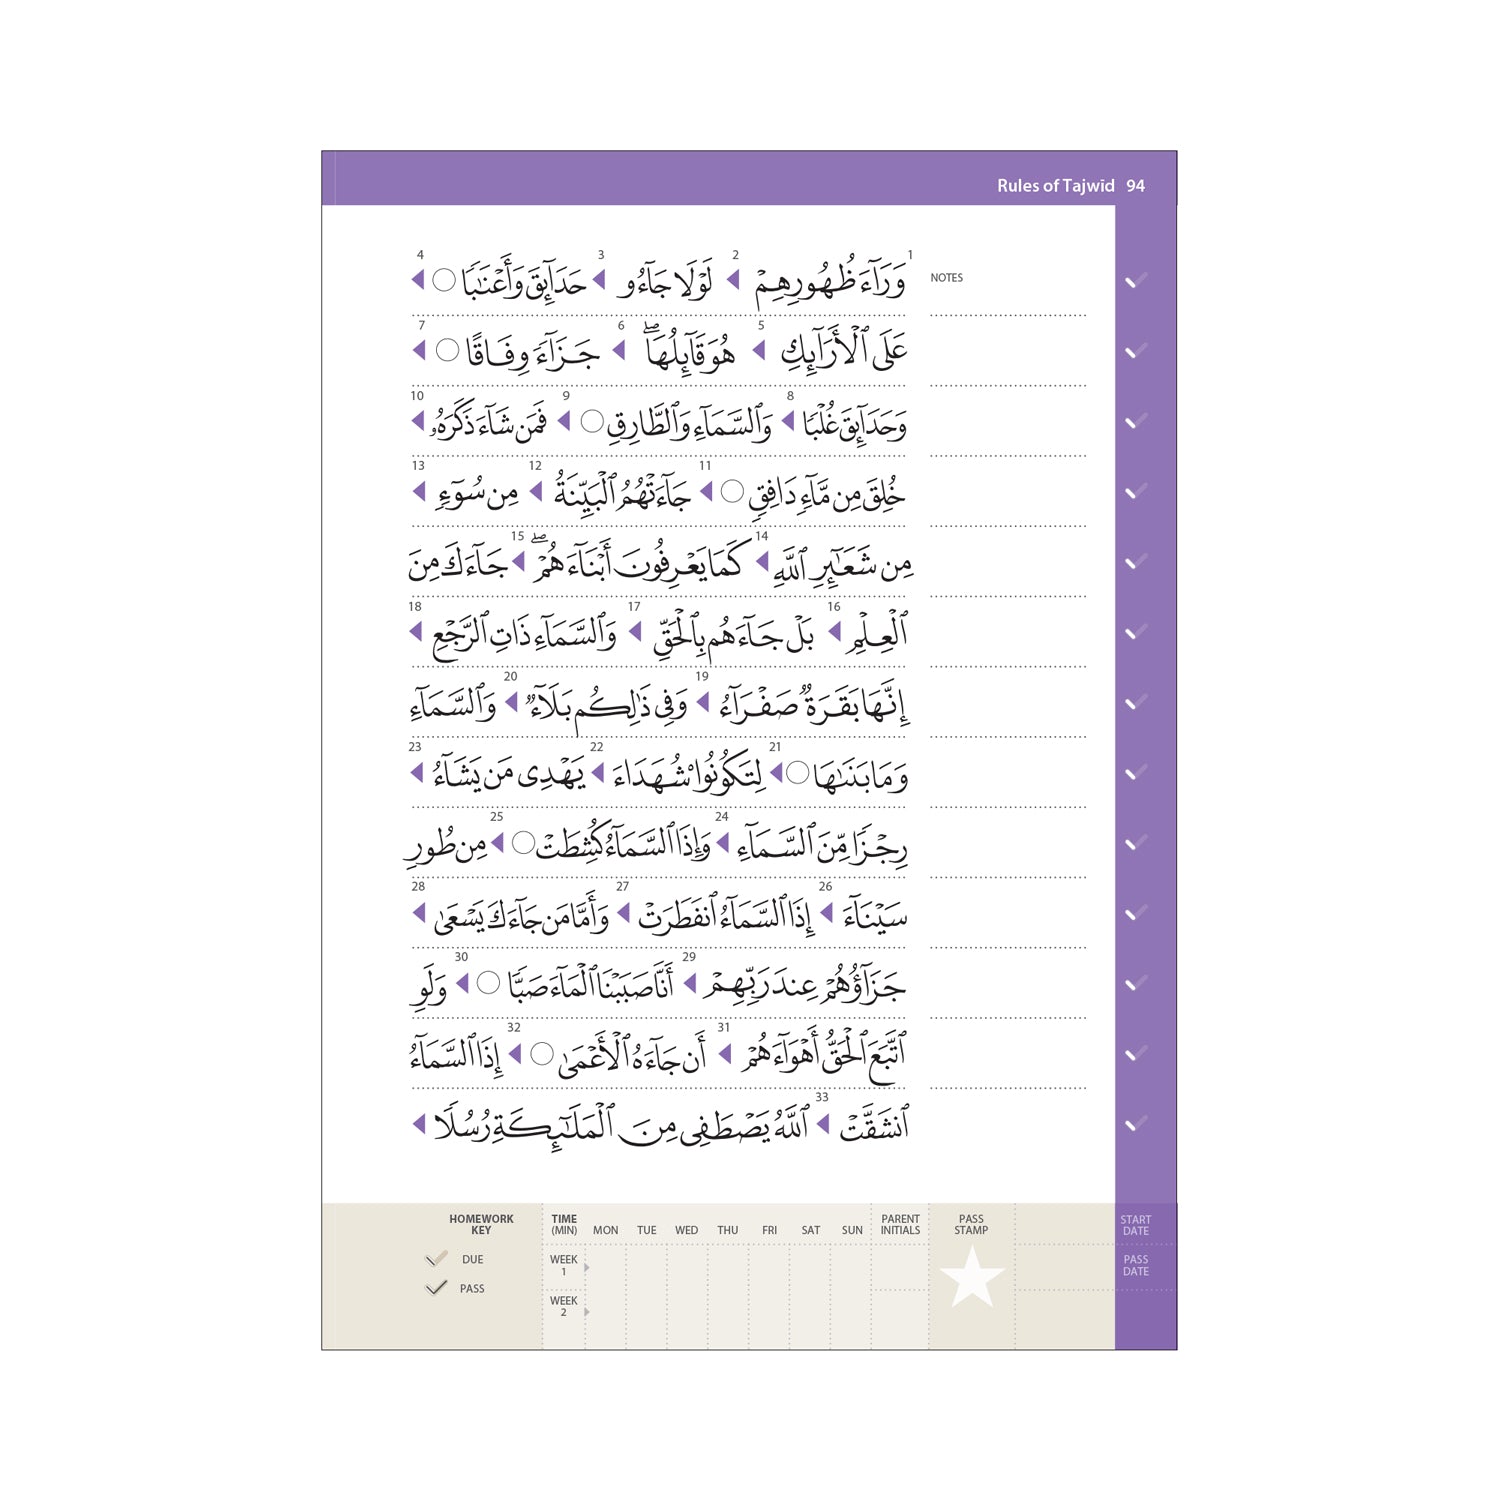 Rules of Tajwīd 94
1 2 3 4
وَرَآءَ ظُهُورِهِمْ ◀ لَوْلَا جَآءُو ◀ حَدَآئِقَ وَأَعْنَٰبًا ○ ◀
NOTES
5 6 7
عَلَى ٱلْأَرَآئِكِ ◀ هُوَ قَآئِلُهَا ۖ ◀ جَزَآءً وِفَاقًا ○ ◀
8 9 10
وَحَدَآئِقَ غُلْبًا ◀ وَٱلسَّمَآءِ وَٱلطَّارِقِ ○ ◀ فَمَن شَآءَ ذَكَرَهُۥ ◀
11 12 13
خُلِقَ مِن مَّآءٍ دَافِقٍ ○ ◀ جَآءَتْهُمُ ٱلْبَيِّنَةُ ◀ مِن سُوٓءٍ ◀
14 15
مِن شَعَآئِرِ ٱللَّهِ ◀ كَمَا يَعْرِفُونَ أَبْنَآءَهُمْ ۖ ◀ جَآءَكَ مِنَ
16 17 18
ٱلْعِلْمِ ◀ بَلْ جَآءَهُم بِٱلْحَقِّ ◀ وَٱلسَّمَآءِ ذَاتِ ٱلرَّجْعِ ◀
19 20
إِنَّهَا بَقَرَةٌ صَفْرَآءُ ◀ وَفِى ذَٰلِكُم بَلَآءٌ ◀ وَٱلسَّمَآءِ
21 22 23
وَمَا بَنَىٰهَا ○ ◀ لِتَكُونُوا۟ شُهَدَاءَ ◀ يَهْدِى مَن يَشَآءُ ◀
24 25
رِجْزًا مِّنَ ٱلسَّمَآءِ ◀ وَإِذَا ٱلسَّمَآءُ كُشِطَتْ ○ ◀ مِن طُورِ
26 27 28
سَيْنَآءَ ◀ إِذَا ٱلسَّمَآءُ ٱنفَطَرَتْ ◀ وَأَمَّا مَن جَآءَكَ يَسْعَىٰ ◀
29 30
جَزَآؤُهُمْ عِندَ رَبِّهِمْ ◀ أَنَّا صَبَبْنَا ٱلْمَآءَ صَبًّا ○ ◀ وَلَوِ
31 32
ٱتَّبَعَ ٱلْحَقُّ أَهْوَآءَهُمْ ◀ أَن جَآءَهُ ٱلْأَعْمَىٰ ○ ◀ إِذَا ٱلسَّمَآءُ
33
ٱنشَقَّتْ ◀ ٱللَّهُ يَصْطَفِى مِنَ ٱلْمَلَٰٓئِكَةِ رُسُلًا ◀
HOMEWORK KEY
DUE
PASS
TIME (MIN) MON TUE WED THU FRI SAT SUN PARENT INITIALS PASS STAMP START DATE
WEEK 1
WEEK 2
PASS DATE